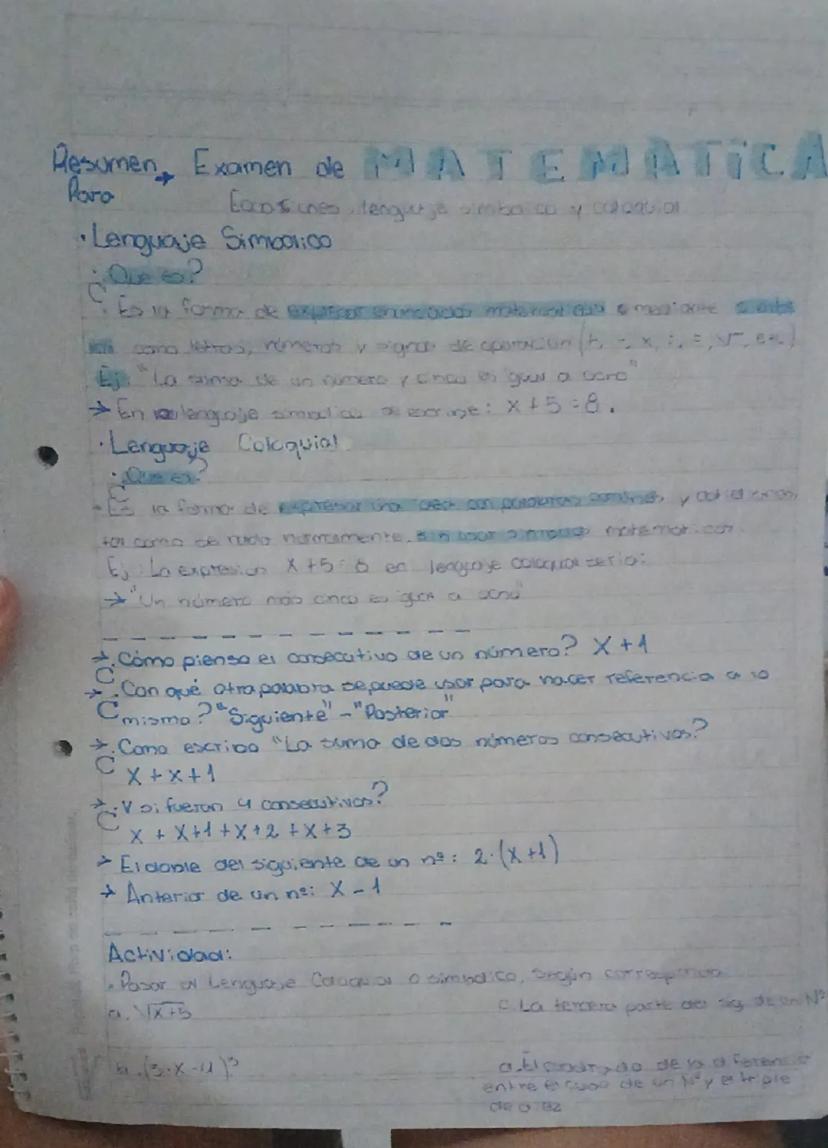 Resumen → Examen de MATEMÁTICA
Para
Ecuaciones, lenguaje simbolico y coloquial
• Lenguaje Simbolico
• ¿Que es?
• Es la forma de expresar enunciados matematicos mediante simbo
los como letras, números y signos de operación (+, -, x, :, =, √, etc.)
Ej: "La suma de un número y cinco es igual a ocho"
→ En lenguaje simbolico se escribe: x + 5 = 8.
• Lenguaje Coloquial
• ¿Que es?
• Es la forma de expresar una idea con palabras comunes, y cotidianas,
tal como se habla normalmente, sin usar simbolos matematicos.
Ej: La expresion x + 5 = 8 en lenguaje coloquial seria:
→ "Un número más cinco es igual a ocho"
→ ¿Cómo pienso el consecutivo de un número? x + 1
→ ¿Con qué otra palabra se puede usar para hacer referencia a lo
mismo? "Siguiente" - "Posterior"
→ ¿Como escribo "La suma de dos números consecutivos?
x + x + 1
→ ¿Y si fueran 4 consecutivos?
x + x+1 + x+2 + x+3
→ El doble del siguiente de un nº: 2·(x+1)
→ Anterior de un nº: x - 1
Actividad:
• Pasar al Lenguaje Coloquial o simbolico, según corresponda
a. √x+5
c. La tercera parte del sig de un Nº
b. (3·x-4)³
d. El cuadrado de la diferencia
entre el cubo de un Nº y el triple
de diez